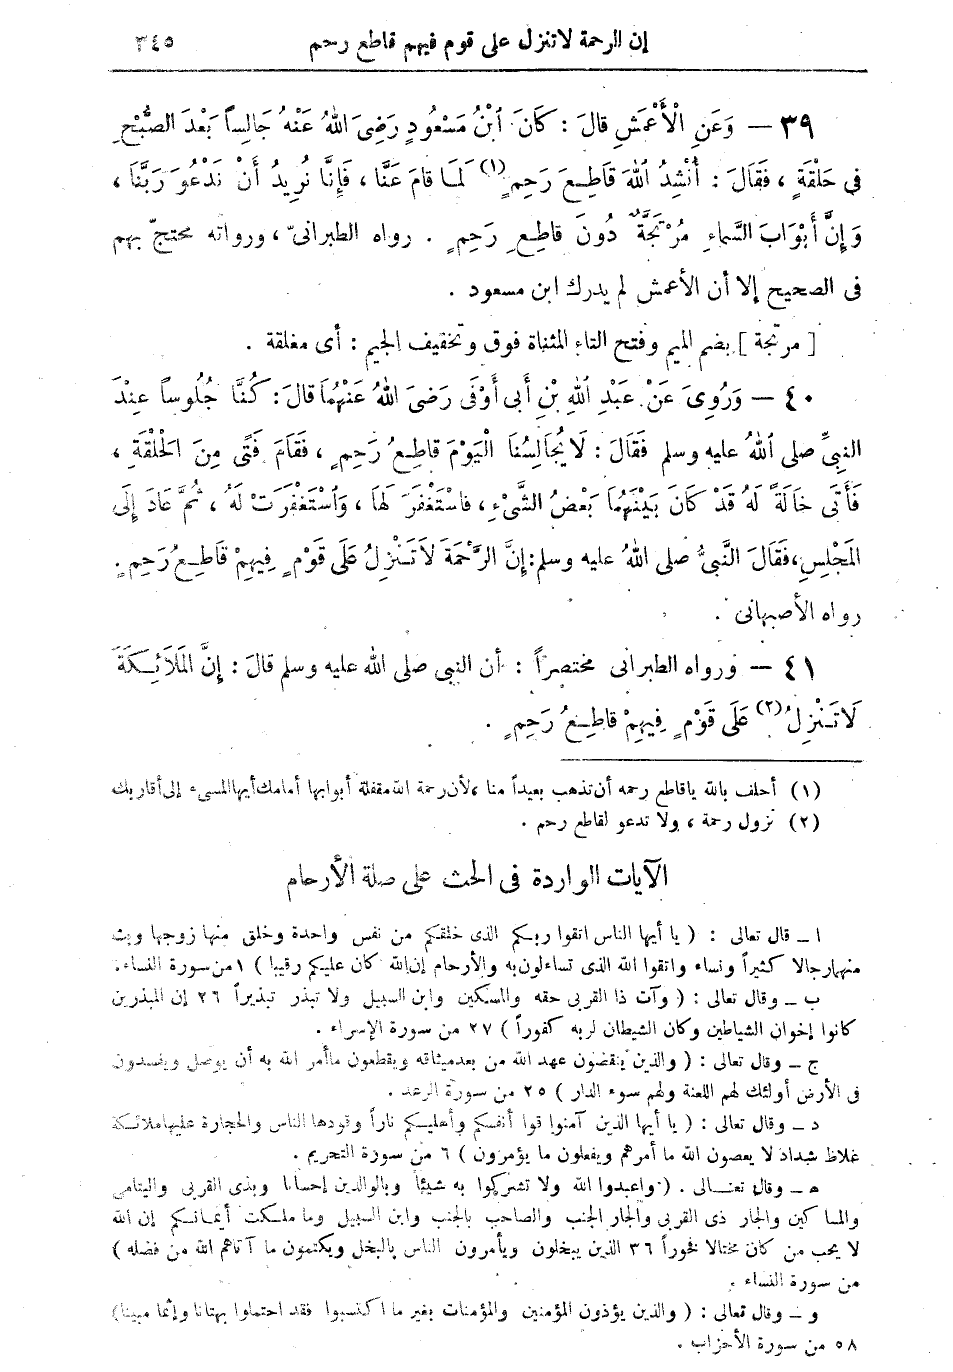 إن الرحمة لا تنزل على قوم فيهم قاطع رحم ٣٤٥
٣٩ — وَعَنِ الْأَعْمَشِ قَالَ : كَانَ ٱبْنُ مَسْعُودٍ رَضِىَ اللهُ عَنْهُ جَالِساً بَعْدَ الصُّبْحِ
فِى حَلْقَةٍ ، فَقَالَ : أُنْشِدُ ٱللهَ قَاطِعَ رَحِمٍ (١) لَمَا قَامَ عَنَّا ، فَإِنَّا نُرِيدُ أَنْ نَدْعُوَ رَبَّنَا ،
وَإِنَّ أَبْوَابَ السَّمَاءِ مُرْتَجَةٌ دُونَ قَاطِعِ رَحِمٍ . رواه الطبرانىّ ، ورواته محتجّ بهم
فى الصحيح إلا أن الأعمش لم يدرك ابن مسعود .
[ مرتجة ] بضم الميم وفتح التاء المثناة فوق وتخفيف الجيم : أى مغلقة .
٤٠ — وَرُوِىَ عَنْ عَبْدِ اللهِ بْنِ أَبِى أَوْفَى رَضِىَ اللهُ عَنْهُمَا قَالَ : كُنَّا جُلُوساً عِنْدَ
النبىِّ صلى ٱللهُ عليه وسلم فَقَالَ : لَا يُجَالِسُنَا الْيَوْمَ قَاطِعُ رَحِمٍ ، فَقَامَ فَتًى مِنَ الْحَلْقَةِ ،
فَأَتَى خَالَةً لَهُ قَدْ كَانَ بَيْنَهُمَا بَعْضُ الشَّىْءِ ، فَاسْتَغْفَرَ لَهَا ، وَٱسْتَغْفَرَتْ لَهُ ، ثُمَّ عَادَ إِلَى
المَجْلِسِ ، فَقَالَ النَّبِىُّ صلى اللهُ عليه وسلم : إِنَّ الرَّحْمَةَ لَا تَنْزِلُ عَلَى قَوْمٍ فِيهِمْ قَاطِعُ رَحِمٍ .
رواه الأصبهانى .
٤١ — ورواه الطبرانى مختصراً : أن النبى صلى الله عليه وسلم قال : إِنَّ المَلَائِكَةَ
لَا تَنْزِلُ (٢) عَلَى قَوْمٍ فِيهِمْ قَاطِعُ رَحِمٍ .
(١) أحلف بالله يا قاطع رحمه أن تذهب بعيداً منا ، لأن رحمة الله مقفلة أبوابها أمامك أيها المسىء إلى أقاربك
(٢) نزول رحمة ، ولا تدعو لقاطع رحم .
الآيات الواردة فى الحث على صلة الأرحام
ا — قال تعالى : ( يا أيها الناس اتقوا ربكم الذى خلقكم من نفس واحدة وخلق منها زوجها وبث
منهما رجالا كثيراً ونساء واتقوا الله الذى تساءلون به والأرحام إن الله كان عليكم رقيبا ) ١ من سورة النساء .
ب — وقال تعالى : ( وآت ذا القربى حقه والمسكين وابن السبيل ولا تبذر تبذيراً ٢٦ إن المبذرين
كانوا إخوان الشياطين وكان الشيطان لربه كفوراً ) ٢٧ من سورة الإسراء .
ج — وقال تعالى : ( والذين ينقضون عهد الله من بعد ميثاقه ويقطعون ما أمر الله به أن يوصل ويفسدون
فى الأرض أولئك لهم اللعنة ولهم سوء الدار ) ٢٥ من سورة الرعد .
د — وقال تعالى : ( يا أيها الذين آمنوا قوا أنفسكم وأهليكم ناراً وقودها الناس والحجارة عليها ملائكة
غلاظ شداد لا يعصون الله ما أمرهم ويفعلون ما يؤمرون ) ٦ من سورة التحريم .
ه — وقال تعالى . ( واعبدوا الله ولا تشركوا به شيئاً وبالوالدين إحسانا وبذى القربى واليتامى
والمساكين والجار ذى القربى والجار الجنب والصاحب بالجنب وابن السبيل وما ملكت أيمانكم إن الله
لا يحب من كان مختالا فخوراً ٣٦ الذين يبخلون ويأمرون الناس بالبخل ويكتمون ما آتاهم الله من فضله )
من سورة النساء .
و — وقال تعالى : ( والذين يؤذون المؤمنين والمؤمنات بغير ما اكتسبوا فقد احتملوا بهتانا وإثما مبينا )
٥٨ من سورة الأحزاب .